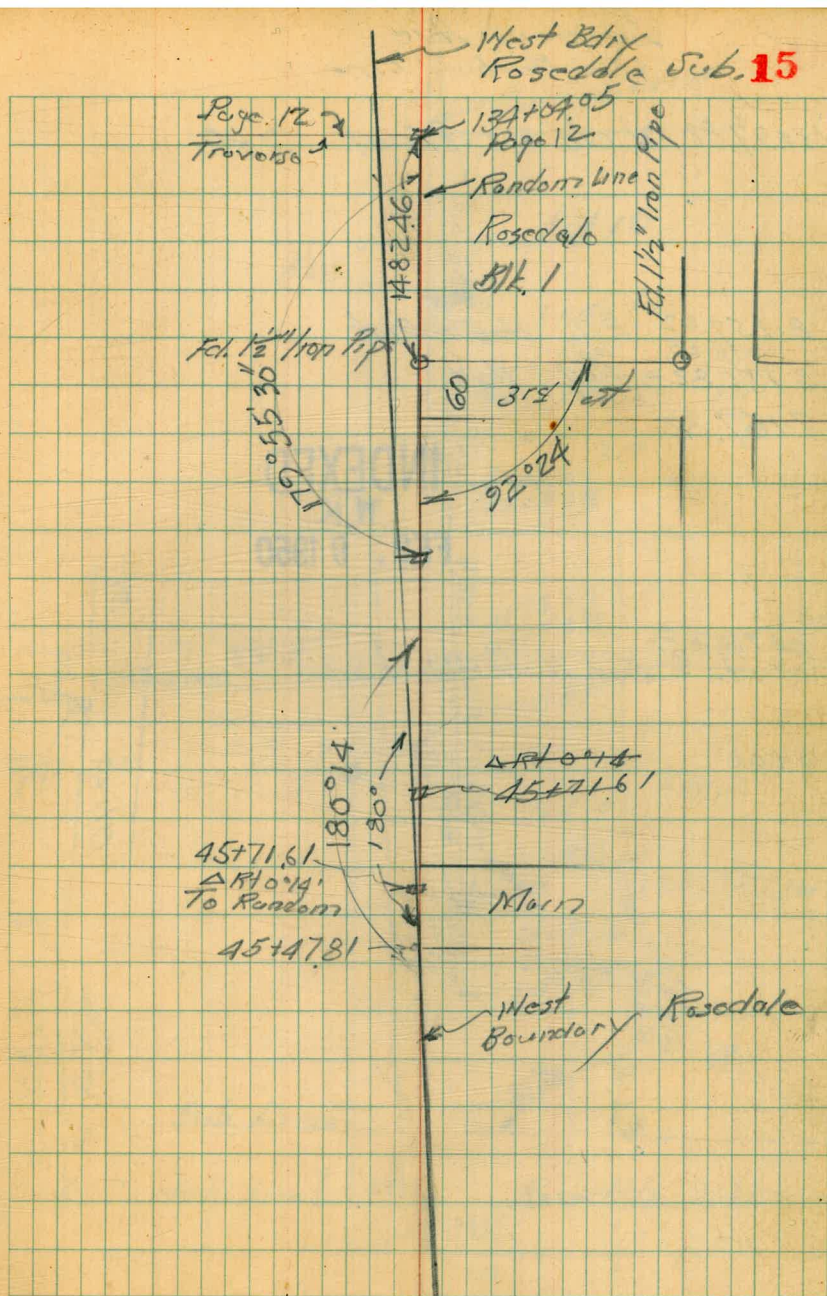 West Bdry
Rosedale Sub. 15
Page 12
Traverse
134+04.05
Page 12
Random Line
Rosedale
Blk. 1
Fd. 1½" Iron Pipe
1482.46
Fd. 1½" Iron Pipe
60
3rd St
179°55'30"
92°24'
180°14'
180°
Δ Rt 0°14'
45+71.61
45+71.61
Δ Rt 0°14'
To Random
Main
45+47.81
West
Boundary Rosedale